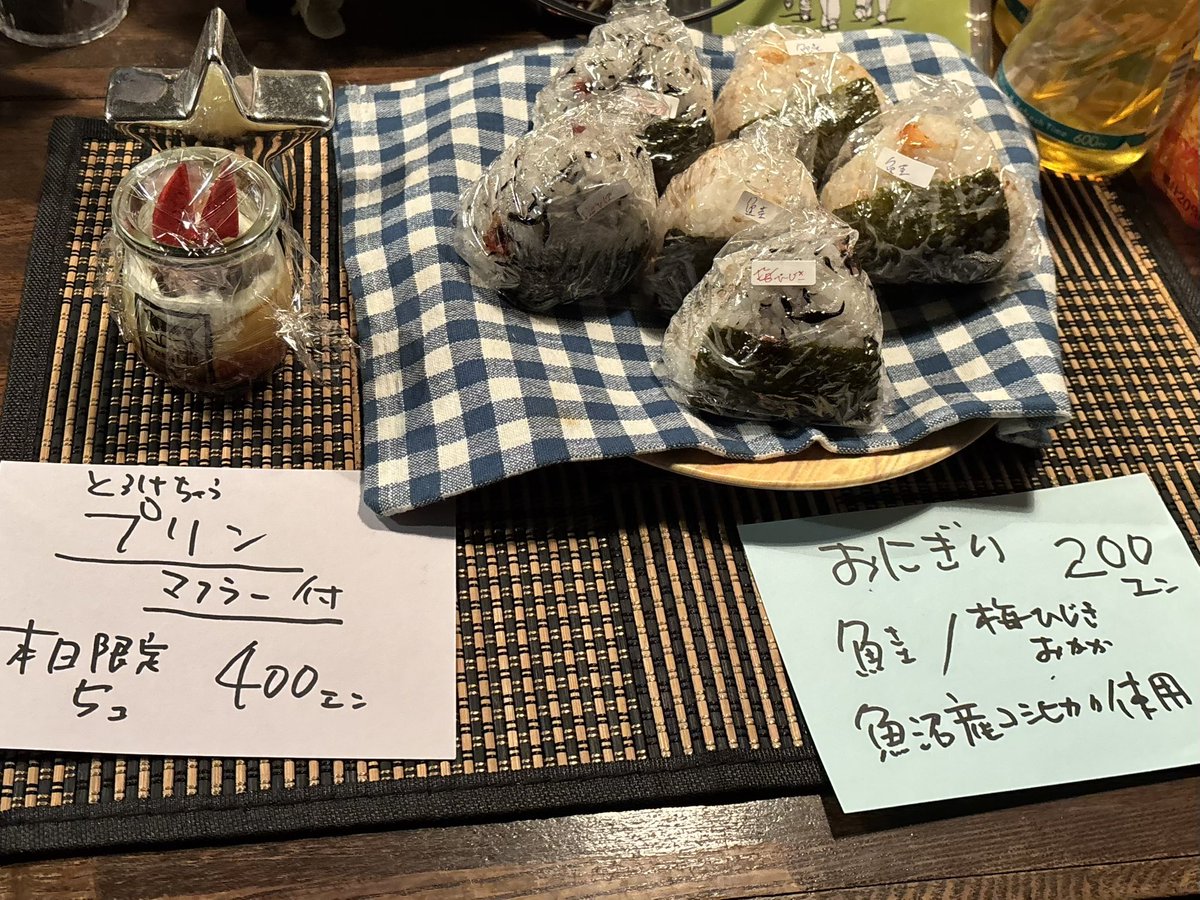 とろけちゃう
プリン
マフラー付
本日限定
5コ
400エン
おにぎり 200エン
鮭/梅ひじき
おかか
魚沼産コシヒカリ使用
鮭
鮭
梅ひじき
600ml